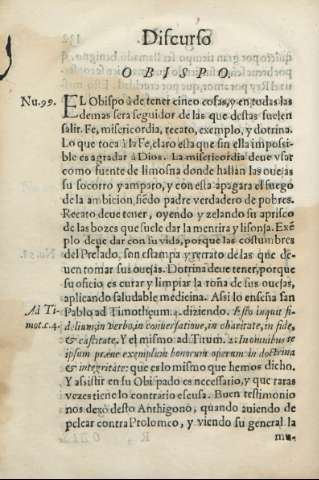 Discurso
OBISPO.
Nu.99. EL Obispo à de tener cinco cosas, y en todas las
demas sera seguidor de las que destas suelen
salir. Fe, misericordia, recato, exemplo, y dotrina.
Lo que toca à la Fe, claro esta que sin ella imposi-
ble es agradar à Dios. La misericordia deve vsar
como fuente de limosna donde hallan las ouejas
su socorro y amparo, y con esta apagara el fuego
de la ambicion, siẽdo padre verdadero de pobres.
Recato deue tener, oyendo y zelando su aprisco
de las bozes que suele dar la mentira y lisonja. Exẽ
plo deue dar con su vida, porque las costumbres
del Prelado, son estampa y retrato de las que de-
uen tomar sus ouejas. Dotrina deue tener, porque
su oficio es curar y limpiar la roña de sus ouejas,
aplicando saludable medicina. Assi lo enseña san
Ad Ti- Pablo ad Timotheum. 4. diziendo. Esto inquit fi-
mot.c.4. delium, in verbo, in conuersatione, in charitate, in fide,
& castitate. Y el mismo ad Titum. 2. In omnibus te
ipsum præue exemplum bonorum operum in doctrina
& integritate: que es lo mismo que hemos dicho.
Y assistir en su Obispado es necessario, y que raras
vezes tiene lo contrario escusa. Buen testimonio
nos dexò desto Anthigono, quando auiendo de
pelear contra Ptolomeo, y viendo su general la
mu-